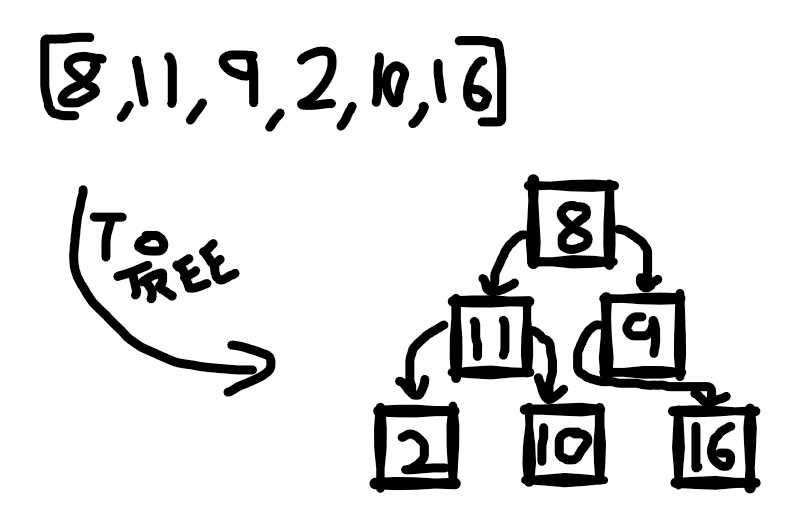 [8,11,9,2,10,16]
TO
TREE
8
11 9
2 10 16